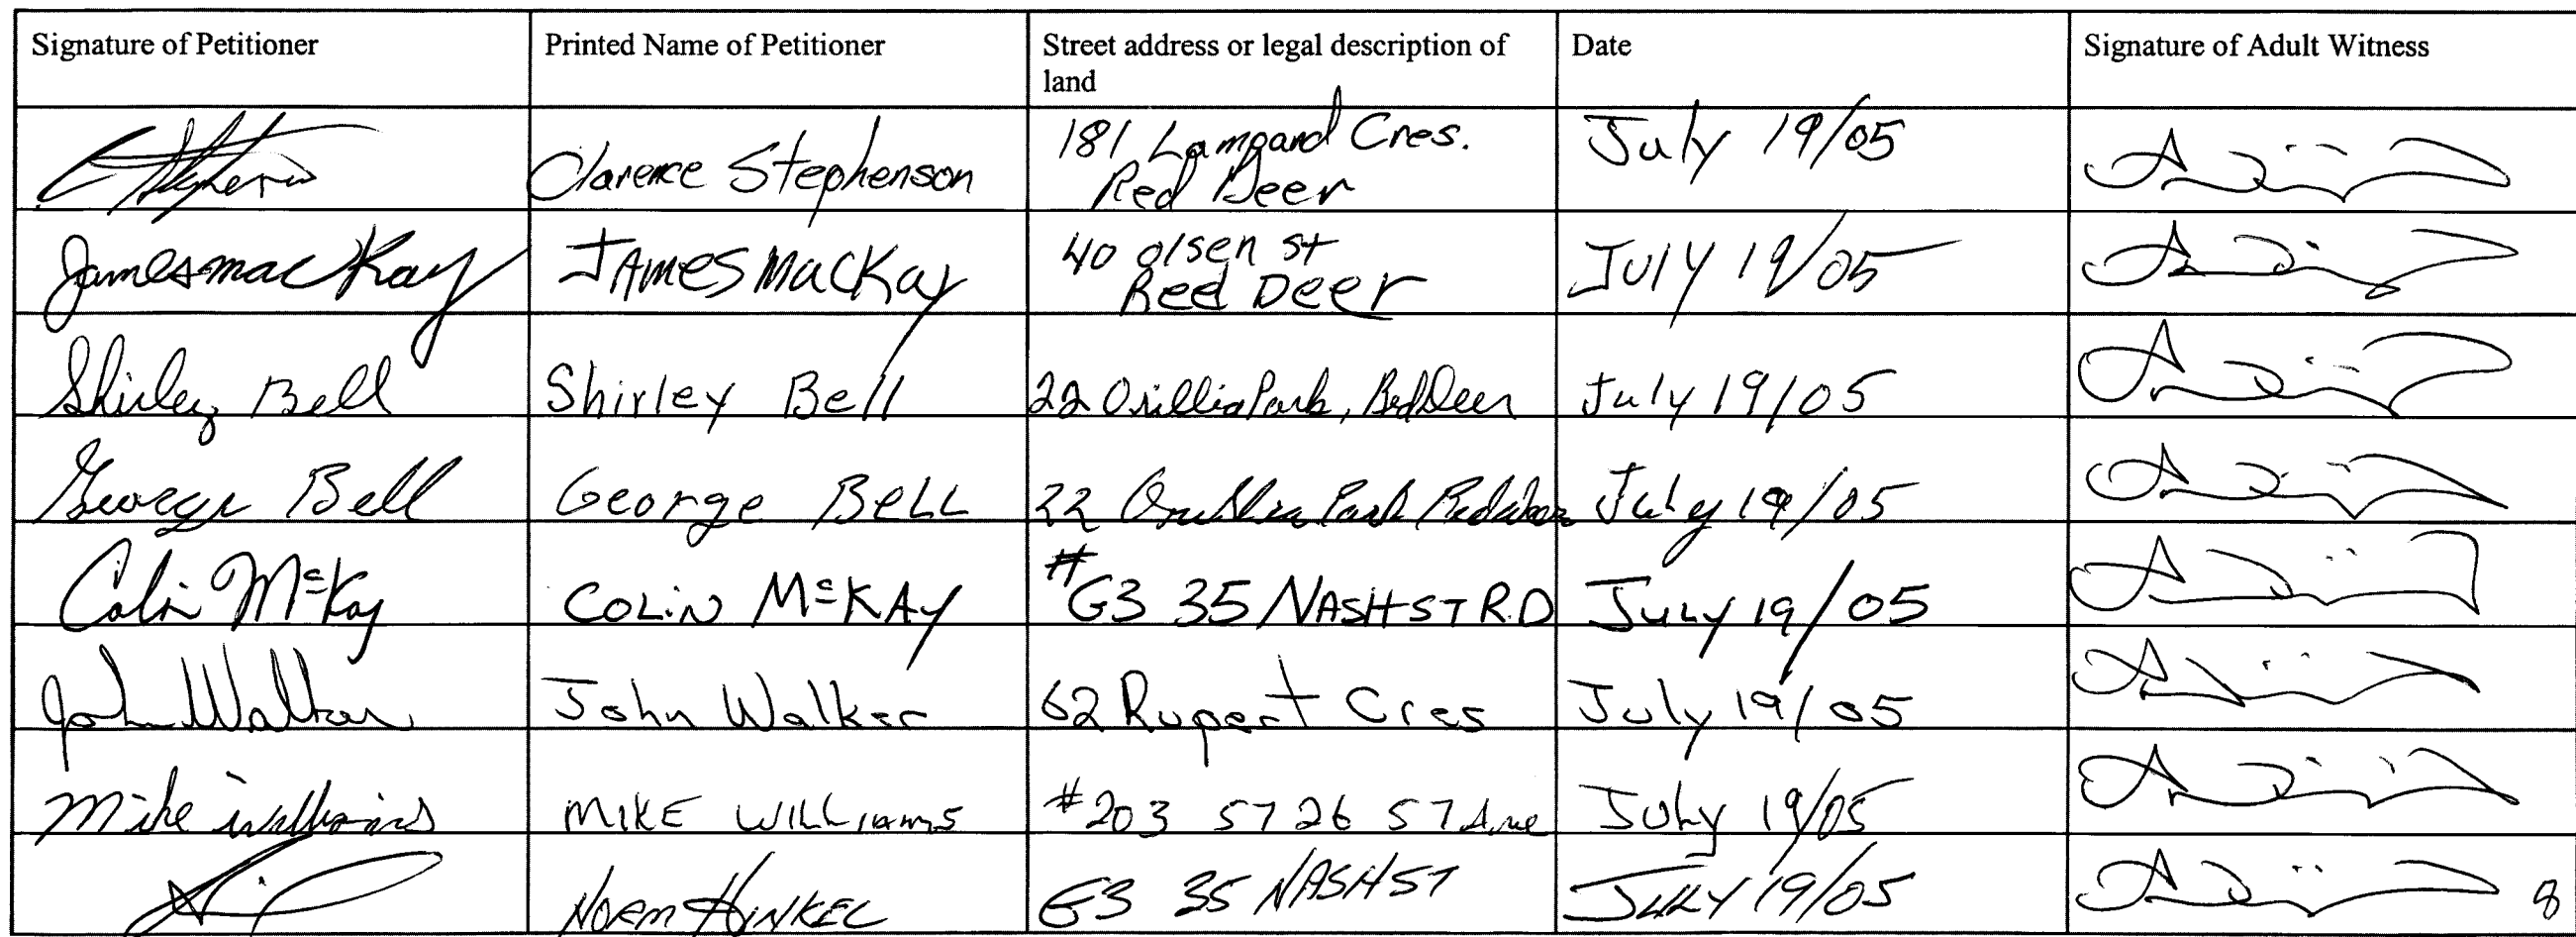 Signature of Petitioner
Printed Name of Petitioner
Street address or legal description of
land
Date
Signature of Adult Witness
Clarence Stephenson
181 Lampard Cres.
Red Deer
July 19/05
James mac Kay
JAMES MacKay
40 olsen st
Red Deer
JUly 19/05
Shirley Bell
Shirley Bell
22 Orillia Park, Red Deer
July 19/05
George Bell
George BeLL
22 Orillia Park Red deer
July 19/05
Colin McKay
COLiN McKAy
#G3 35 NASH ST R.D
July 19/05
John Walker
John Walker
62 Rupert Cres
July 19/05
Mike williams
MIKE WILLiams
#203 5726 57 Ave
July 19/05
NORM HINKEL
G3 35 NASH ST
JULY 19/05
8